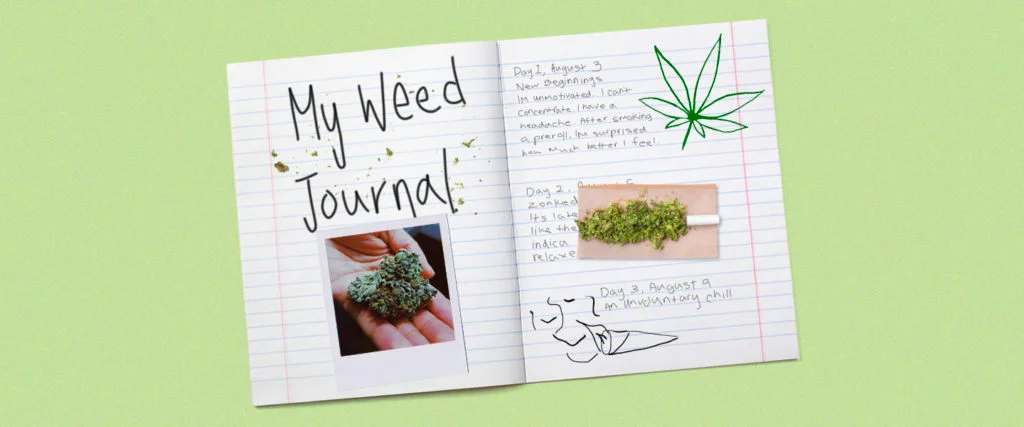 My Weed
Journal
Day 1, August 3
New Beginnings
IM unmotivated. I cant
concentrate. I have a
headache. After smoking
a preroll. IM surprised
how much better I feel.
Day 2,
zonked
Its late
like the
indica
relaxe
Day 3, August 9
An unvoluntary chill